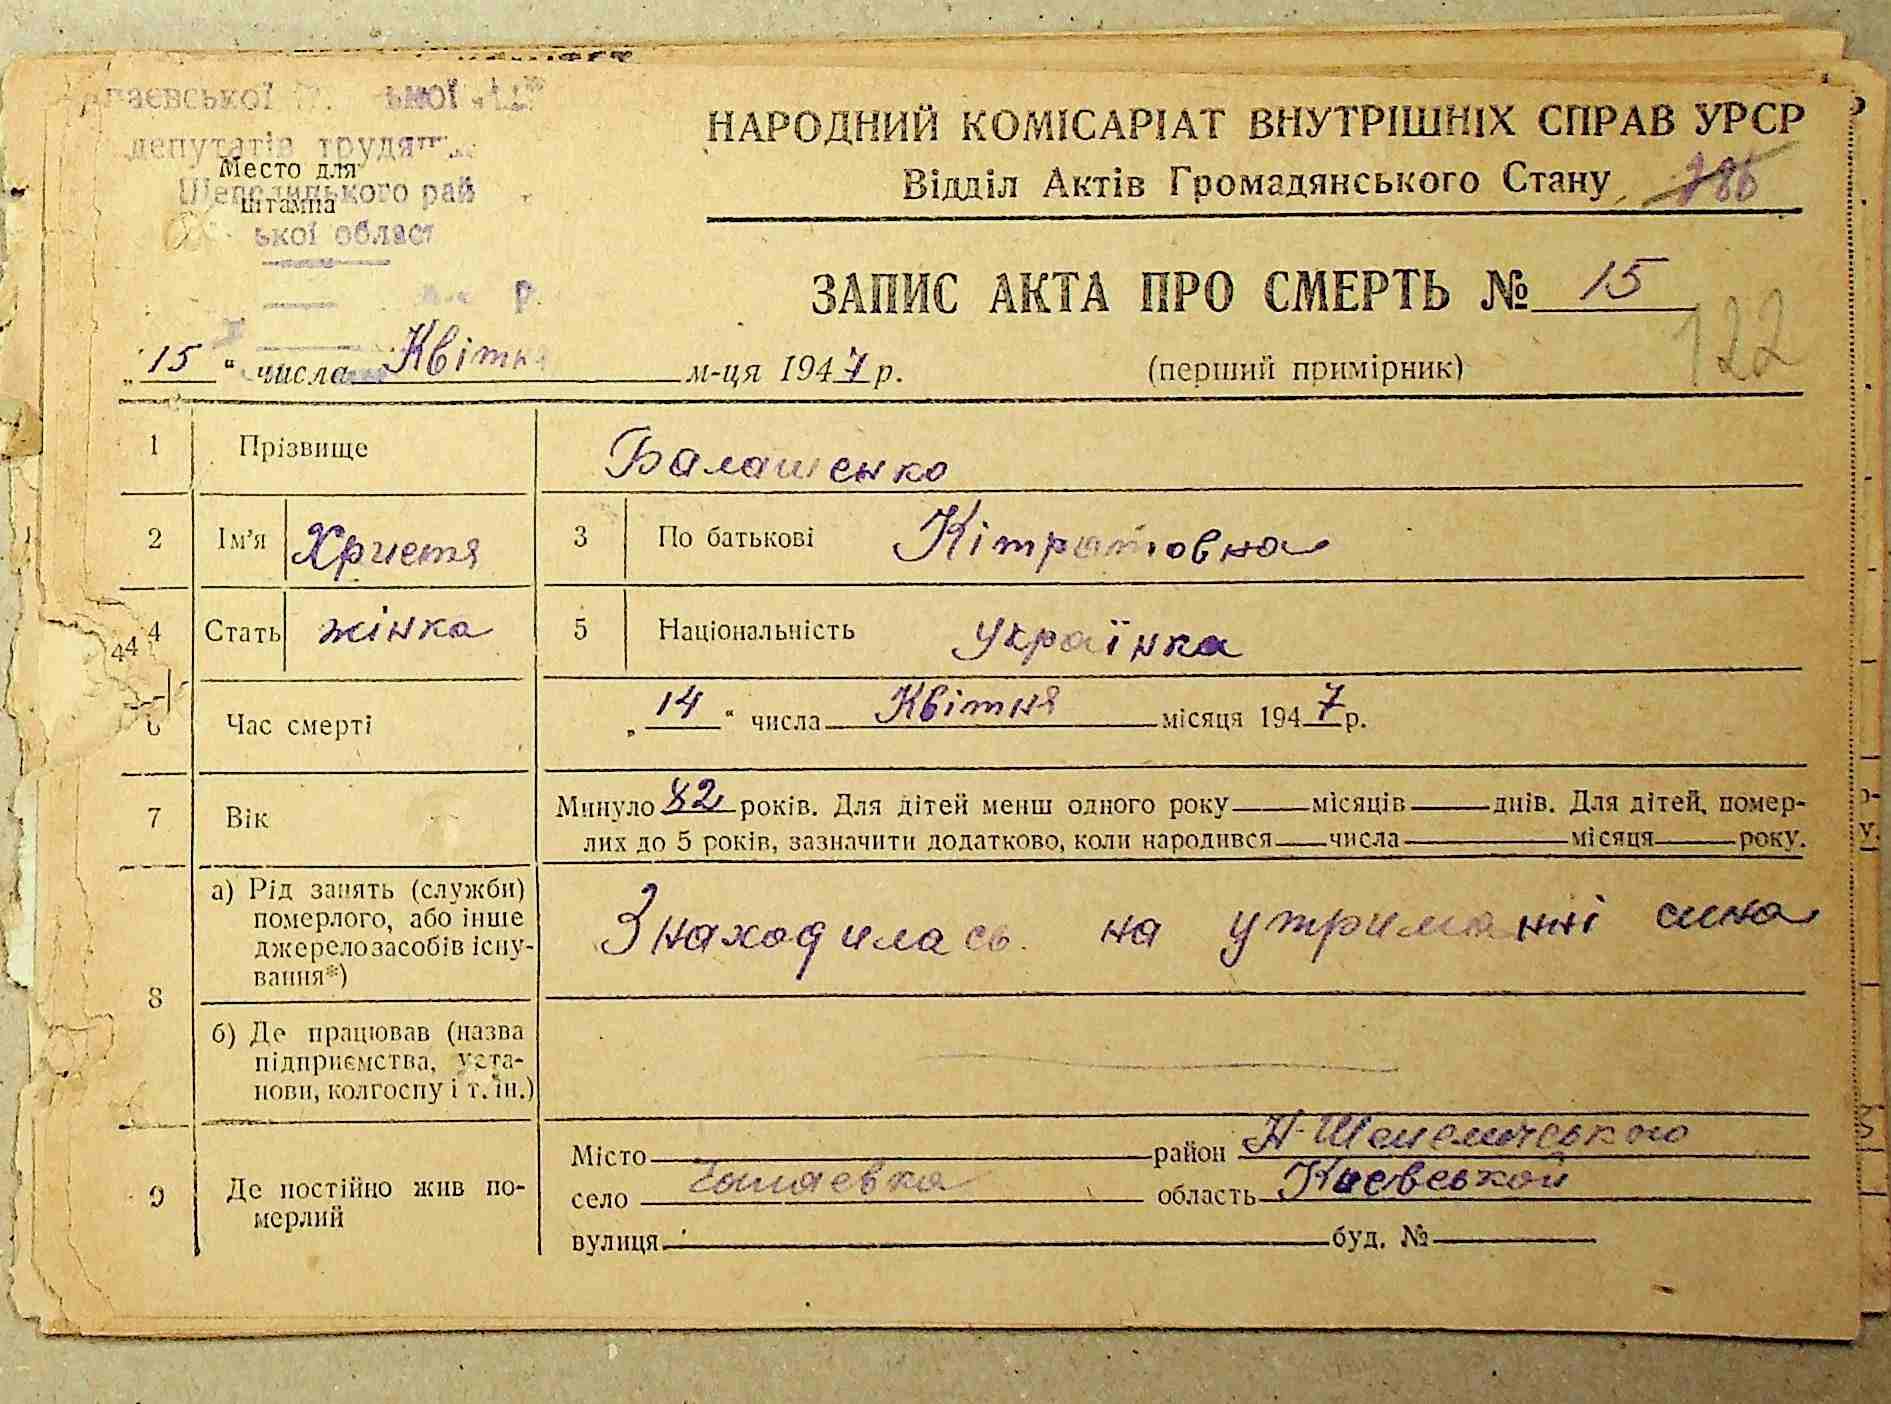 депутатів трудя
Место для
штампа
Шепелицького рай
ької област
НАРОДНИЙ КОМІСАРІАТ ВНУТРІШНІХ СПРАВ УРСР
Відділ Актів Громадянського Стану
ЗАПИС АКТА ПРО СМЕРТЬ № 15
122
„15“ числа Квітня м-ця 1947 р. (перший примірник)
1 Прізвище Балашенко
2 Ім'я Христя 3 По батькові
4 Стать жінка 5 Національність Українка
44
6 Час смерті „14“ числа Квітня місяця 1947 р.
7 Вік Минуло 82 років. Для дітей менш одного року місяців днів. Для дітей, помер-
лих до 5 років, зазначити додатково, коли народився числа місяця року.
8 а) Рід занять (служби)
померлого, або інше
джерело засобів існу-
вання*)
Знаходилась на утриманні сина
б) Де працював (назва
підприємства, уста-
нови, колгоспу і т. ін.)
9 Де постійно жив по-
мерлий
Місто район Н-Шепеличського
село Чапаевка область Киевськой
вулиця буд. №